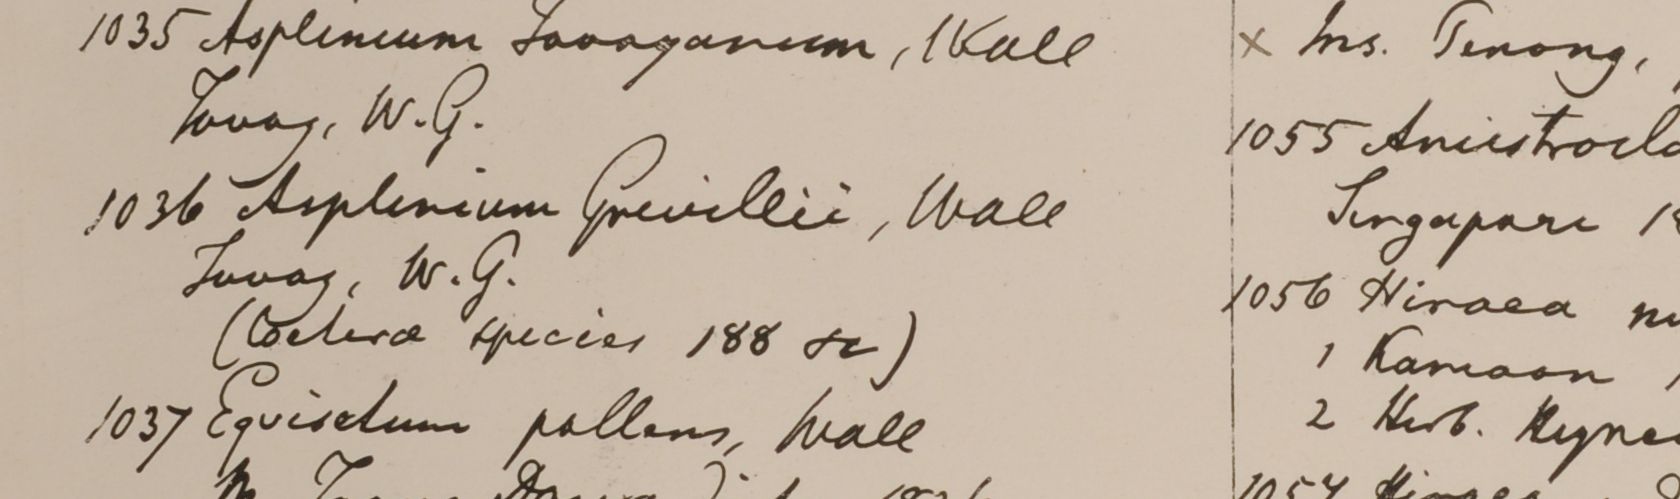 1035 Asplenium Tavoyanum, Wall
Tavoy, W.G.
1036 Asplenium Grevillii, Wall
Tavoy, W.G.
(Coetera species 188 &c)
1037 Equisetum pallens, Wall
× Ins. Penang,
1055 Ancistrocla
Singapore
1056 Hiraea
1 Kamaon
2 Herb. Heyne
1057 Hiraea